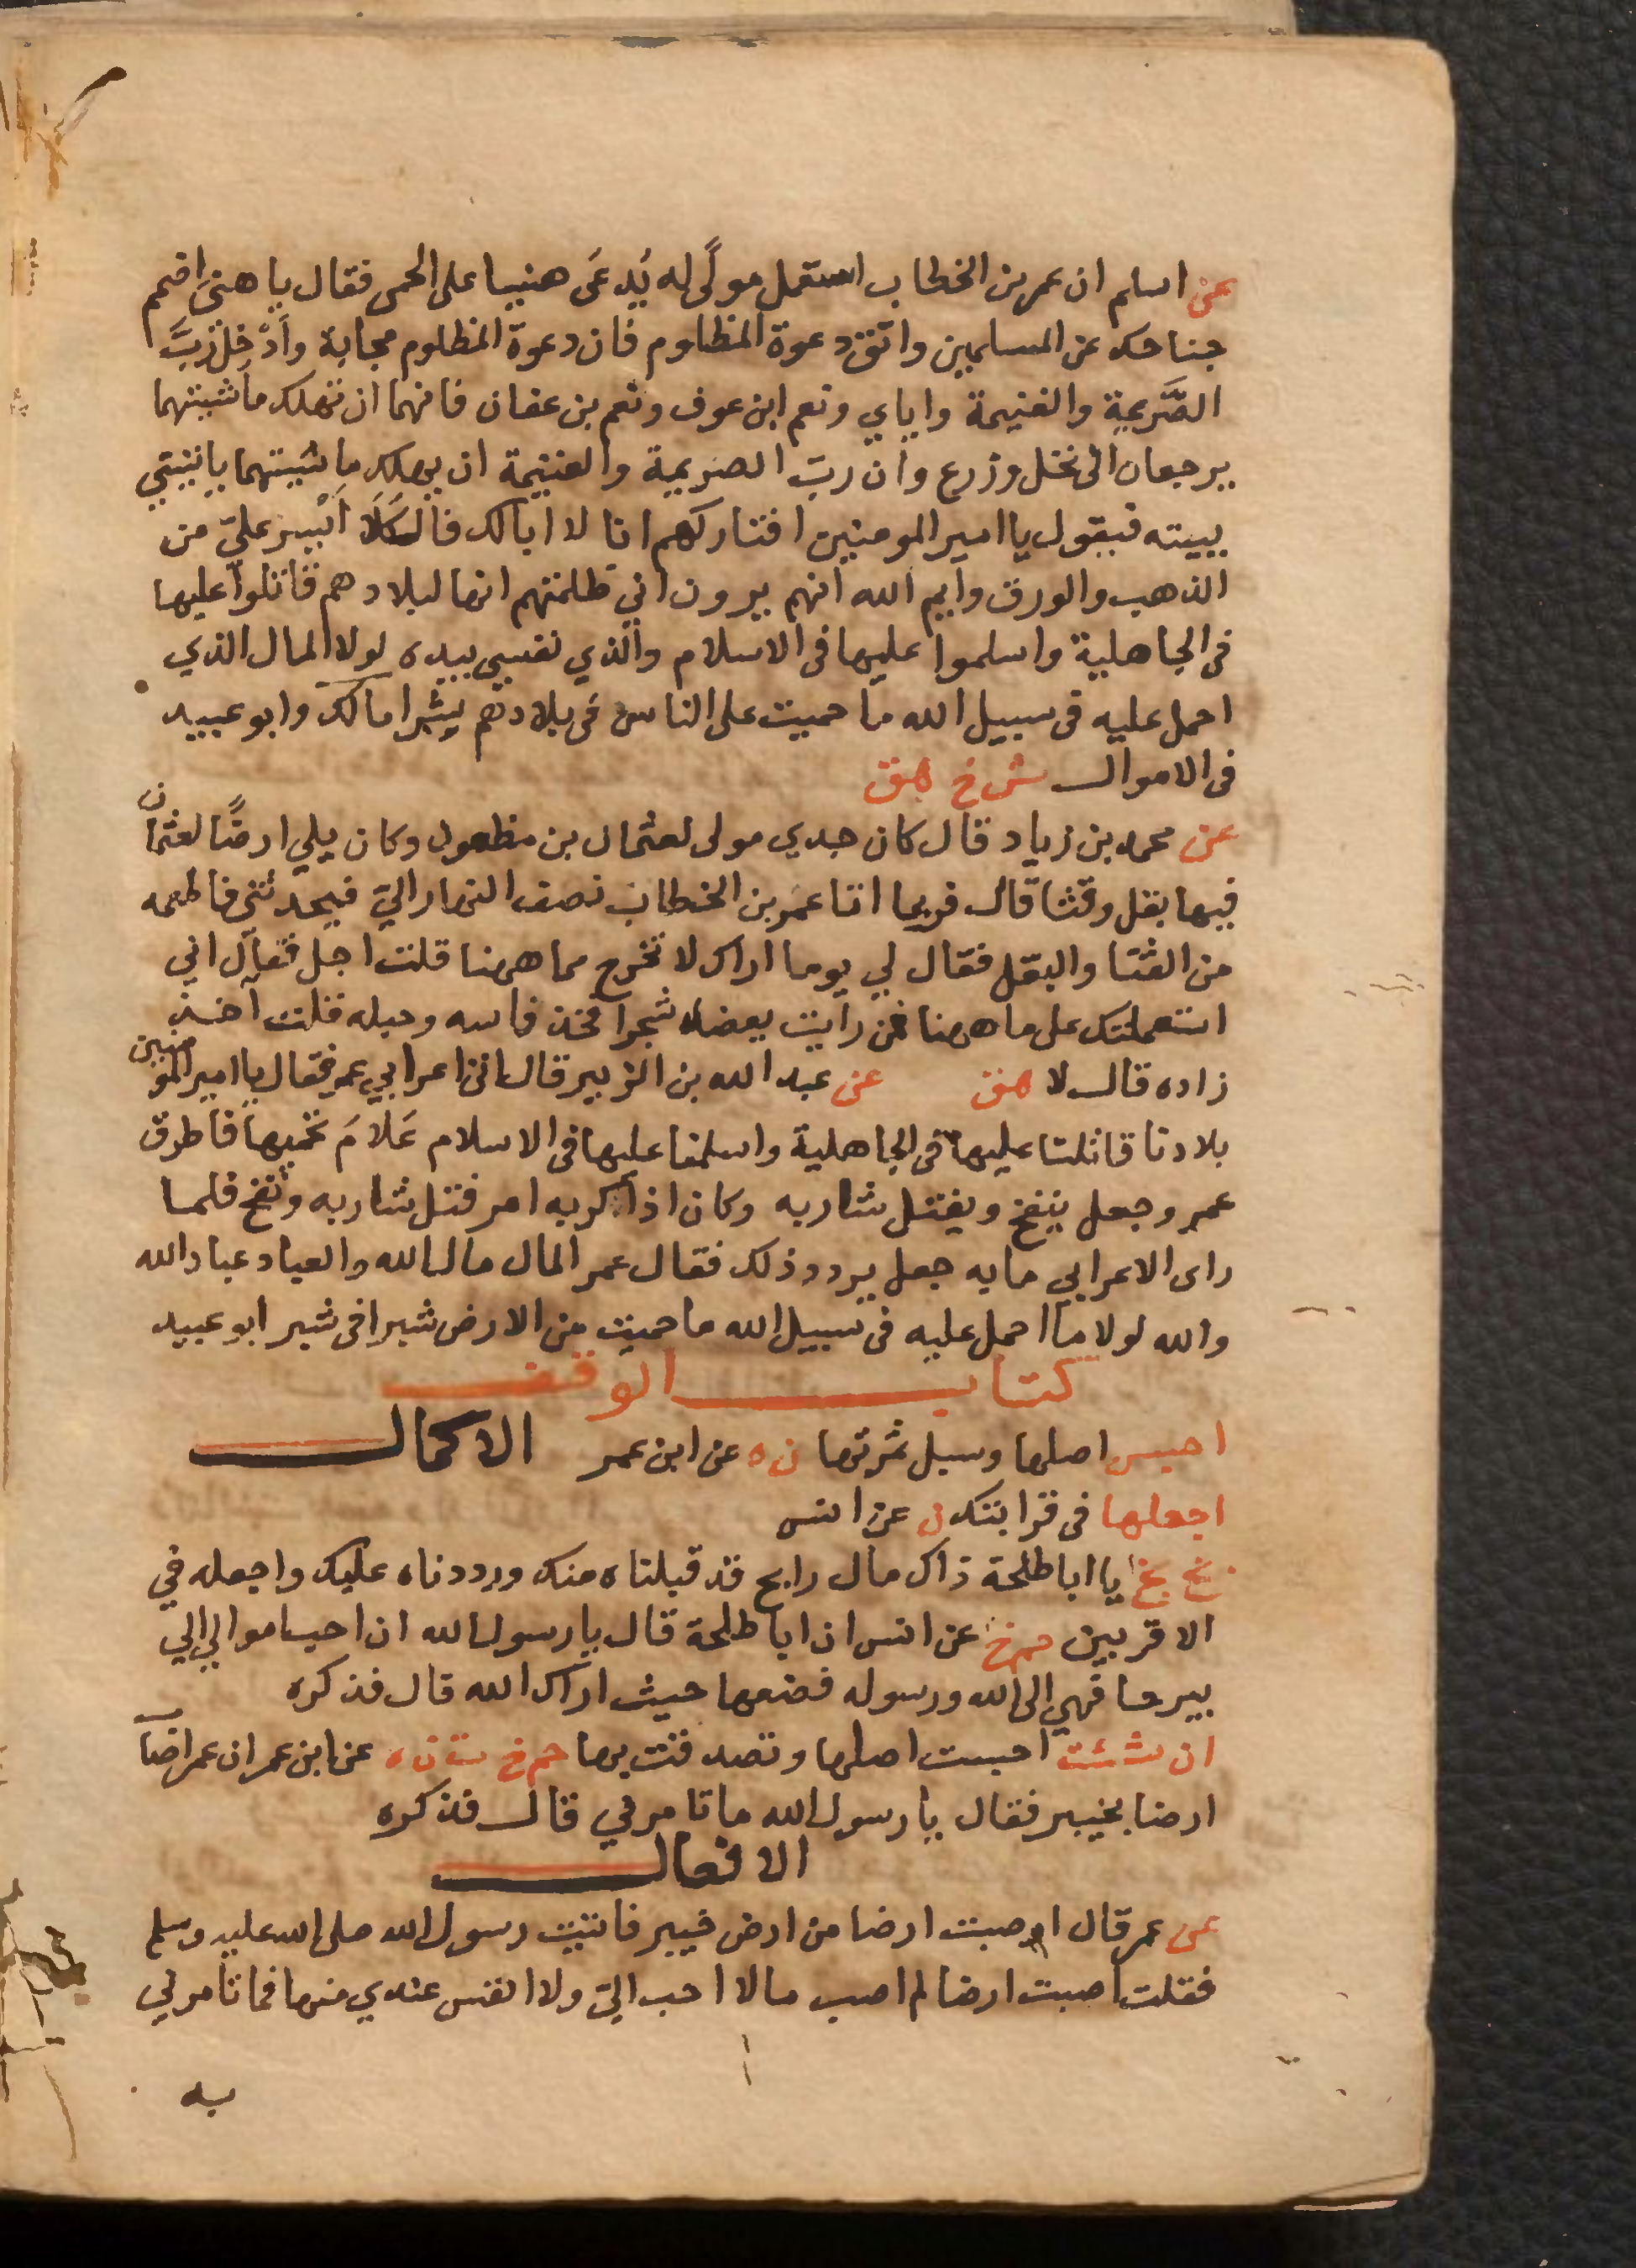 عن اسلم ان عمر بن الخطاب استعمل مولًى له يُدعَى هنيا على الحمى فقال يا هنى اضمم
جناحك عن المسلمين واتق دعوة المظلوم فان دعوة المظلوم مجابة وأَدْخِل رَبَّ
الصَّريمة والغنيمة واياي ونعم ابن عوف ونعم بن عفان فانهما ان تهلك ماشيتهما
يرجعان الى نخل وزرع وان ربّ الصريمة والغنيمة ان يهلك ماشيتهما ياتيني
ببينه فيقول يا امير المومنين افتاركهم انا لا ابا لك فالكَلَا أَيْسر عليّ من
الذهب والورق وايم الله انهم يرون اني ظلمتهم انها لبلادهم قاتلوا عليها
فى الجاهلية واسلموا عليها فى الاسلام والذي نفسي بيده لولا المال الذي
احمل عليه فى سبيل الله ما حميت على الناس فى بلادهم شبرا مالك وابو عبيد
فى الاموال ش خ هق
عن محمد بن زياد قال كان جدي مولى لعثمان بن مظعون وكان يلي ارضًا لعثمان
فيها بقل وقثا قال فربما اتنا عمر بن الخطاب نصف النهار اليّ فيحدثني فاطعمه
من القثا والبقل فقال لي يوما اراك لا تخرج مما ههنا قلت اجل فقال اني
استعملتك على ما ههنا فمن رايت يعضد شجرا فخذ فاسه وحبله قلت آخذ
زاده قال لا هق عن عبد الله بن الزبير قال اتى اعرابي عمر فقال يا امير المومنين
بلادنا قاتلنا عليها فى الجاهلية واسلمنا عليها فى الاسلام عَلامَ تحميها فاطرق
عمر وجعل ينفخ ويفتل شاربه وكان اذا كربه امر فتل شاربه ونفخ فلما
راى الاعرابي ما به جعل يردد ذلك فقال عمر المال مال الله والعباد عباد الله
والله لولا ما احمل عليه فى سبيل الله ما حميت من الارض شبرا فى شبر ابو عبيد
كتاب الوقف
احبس اصلها وسبل ثمرتها ن ه عن ابن عمر الاكمال
اجعلها فى قرابتك ن عن انس
بخ بخ يا ابا طلحة ذاك مال رابح قد قبلناه منك ورددناه عليك واجعله في
الاقربين حم خ عن انس ان ابا طلحة قال يا رسول الله ان احب اموالي الي
بيرحا فهي الى الله ورسوله فضعها حيث اراك الله قال فذكره
ان شئت احبست اصلها وتصدقت بها حم خ ت ن ه عن ابن عمر ان عمر اصاب
ارضا بخيبر فقال يا رسول الله ما تامرني قال فذكره
الافعال
عن عمر قال اصبت ارضا من ارض خيبر فاتيت رسول الله صلى الله عليه وسلم
فقلت اصبت ارضا لم اصب مالا احب اليّ ولا انفس عندي منها فما تامرني
به